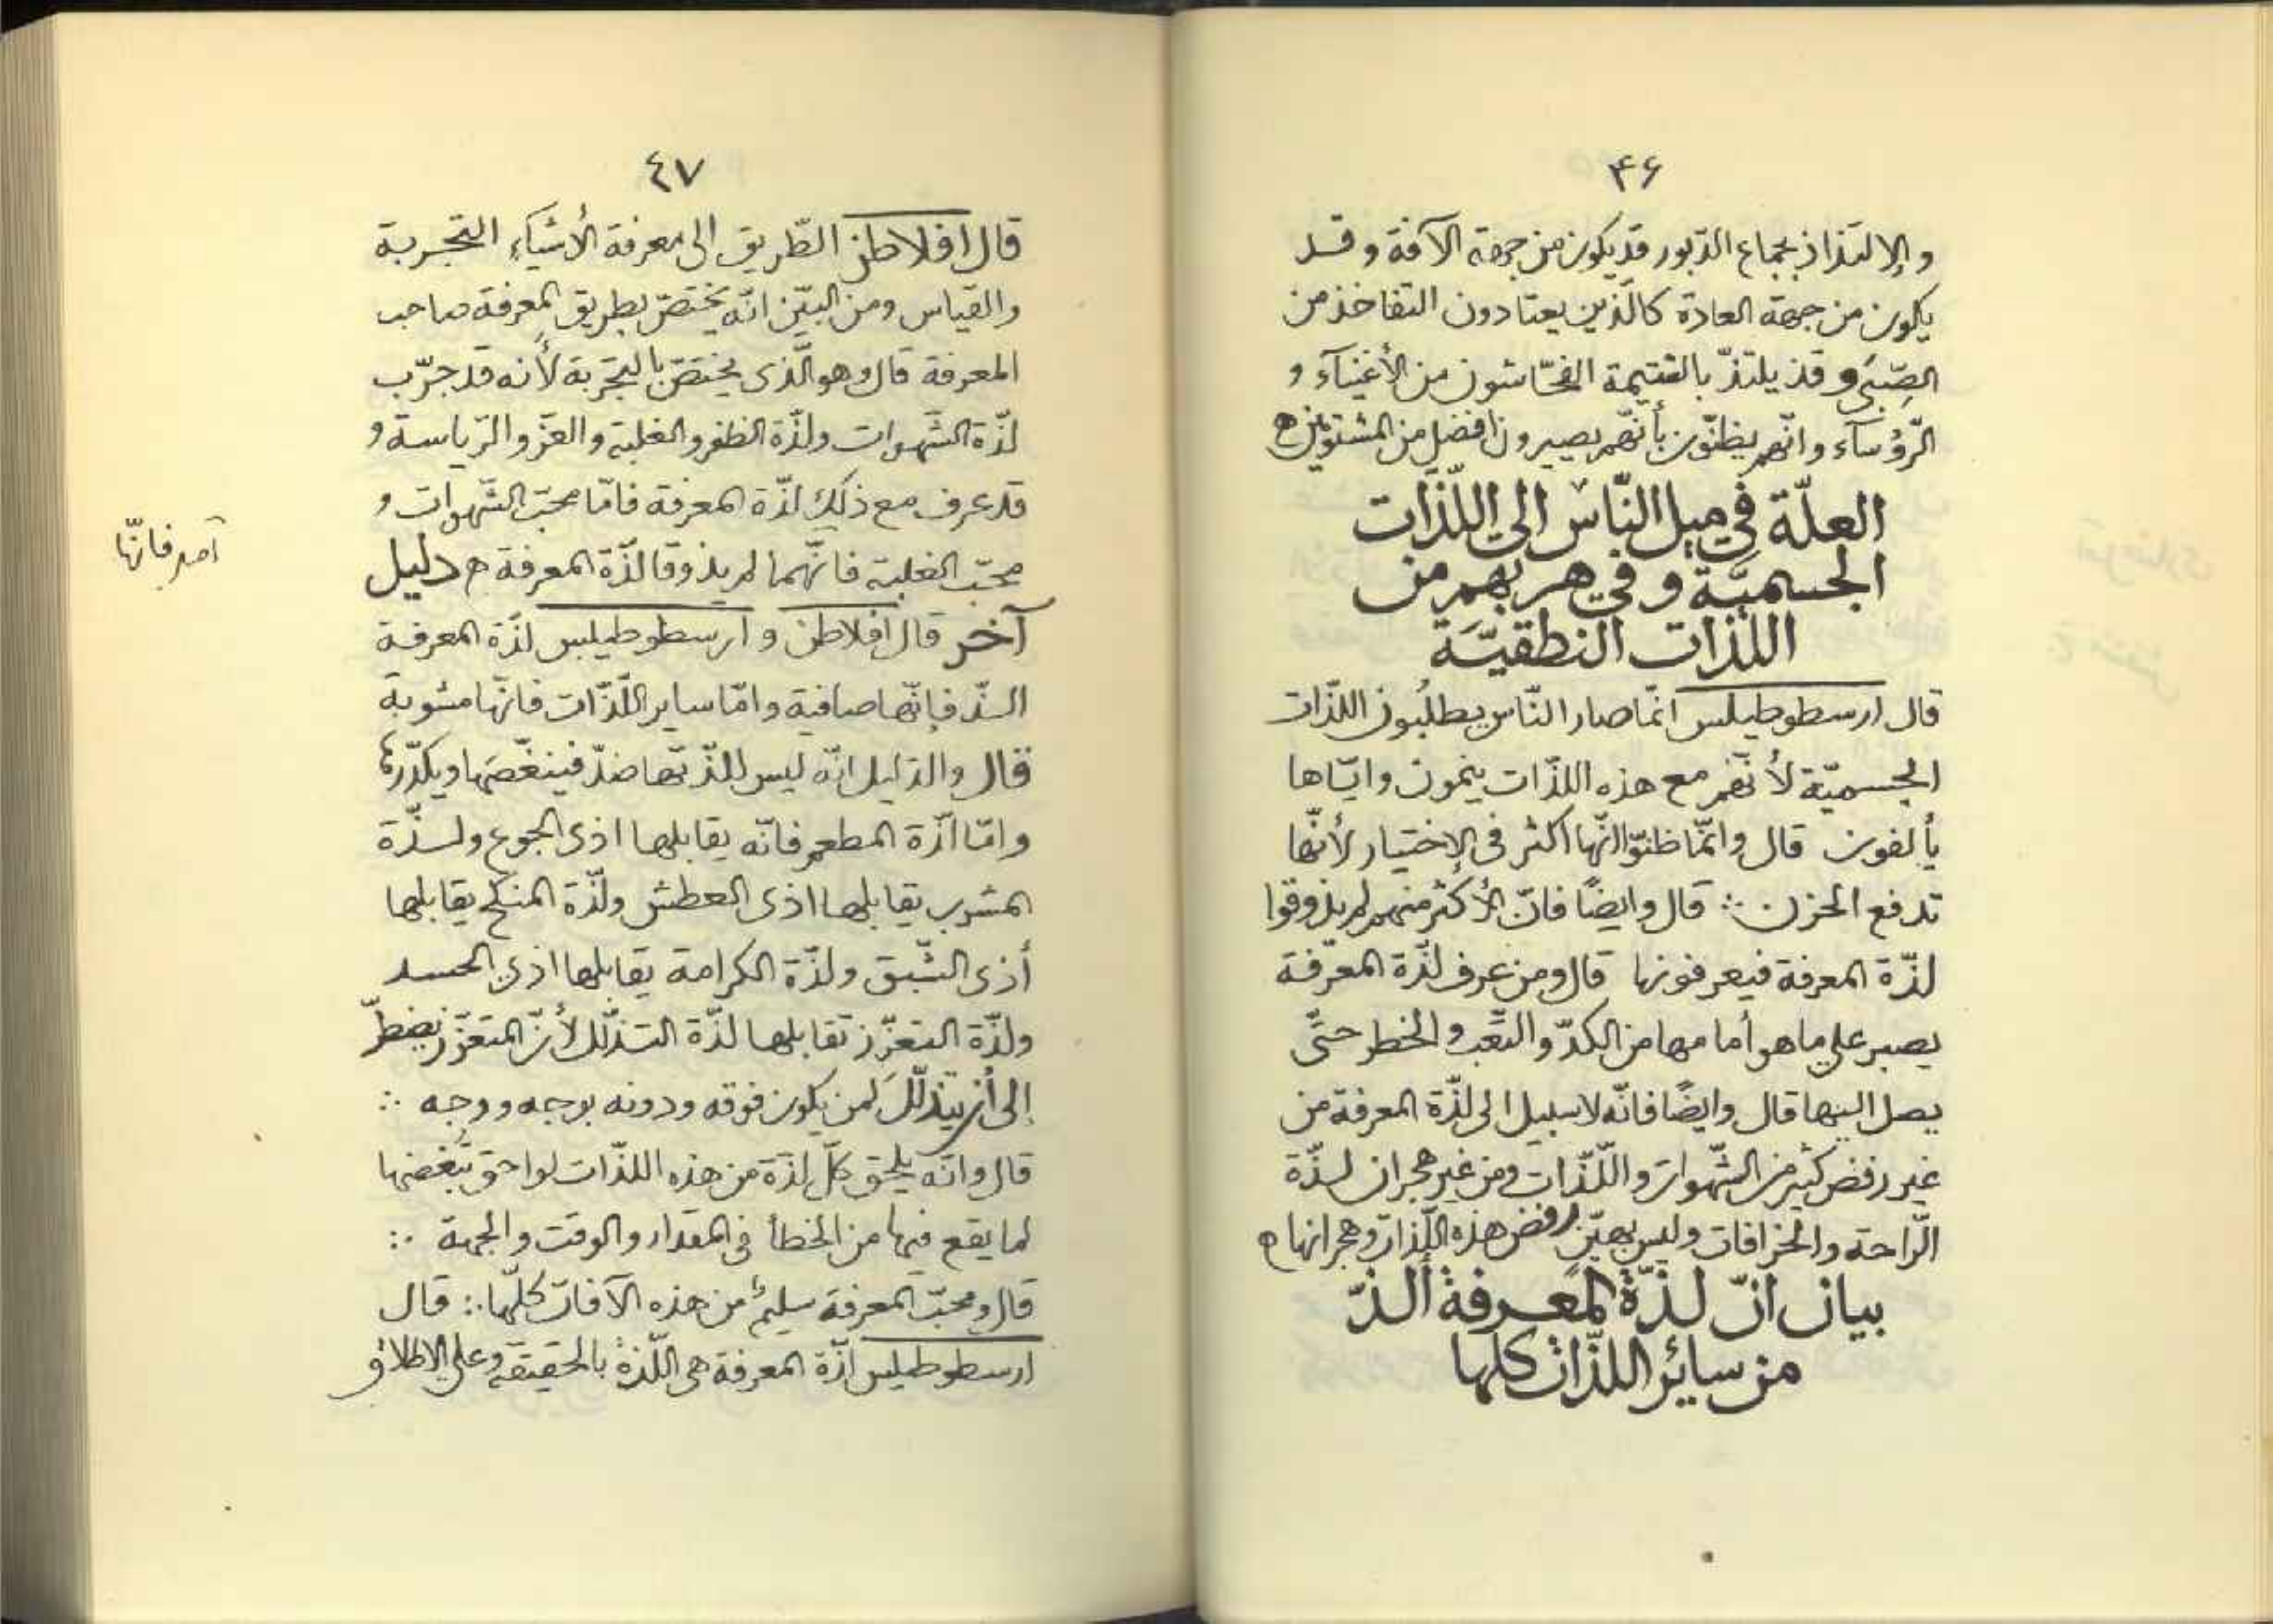 ۴۶
والالتذاذ بجماع الدّبور قد يكون من جهة الآفة وقد
يكون من جهة العادة كالّذين يعتادون التفاخذ من
الصِّبَى وقد يلتذّ بالشتيمة الفحّاشون من الأغنيآء و
الرّؤسآء وانّهم يظنّون بأنّهم يصيرون افضل من المشتومين ه
العلّة في ميل النّاس الى اللّذّات
الجسميّة وفي هربهم من
اللذّات النطقيّة
قال ارسطوطيلس انّما صار النّاس يطلُبون اللذّات
الجسميّة لأنّهم مع هذه اللذّات ينمون وايّاها
يألفون قال وانّما ظنّوا انّها اكثر فى الاختيار لأنّها
تدفع الحزن ∴ قال وايضًا فانّ الأكثر منهم لم يذوقوا
لذّة المعرفة فيعرفونها قال ومن عرف لذّة المعرفة
يصبر على ما هو أمامها من الكدّ والتّعب والخطر حتّى
يصل اليها قال وايضًا فانّه لا سبيل الى لذّة المعرفة من
غير رفض كثير من الشّهوات واللّذّات ومن غير هجران لذّة
الرّاحة والخرافات وليس بهيّن رفض هذه اللّذات وهجرانها ه
بيان انّ لذّة المعرفة ألذّ
من سائر اللذّات كلها
٤٧
قال افلاطن الطّريق الى معرفة الأشيآء التّجربة
والقياس ومن البيّن انّه يختصّ بطريق المعرفة صاحب
المعرفة قال وهو الّذى يختصّ بالتجربة لأنه قد جرّب
لذّة الشّهوات ولذّة الظفر والغلبة والعزّ والرّياسة و
قد عرف مع ذلك لذّة المعرفة فامّا محبّ الشّهوات و
محبّ الغلبة فانّهما لم يذوقا لذّة المعرفة ه دليل
آخر قال افلاطن وارسطوطيلس لذّة المعرفة
الذّ فإنّها صافية وامّا ساير اللّذّات فانّها مشوبة
قال والدّليل انّه ليس للذّتها ضدّ فينغّصها ويكدّرها
وامّا لذّة المطعم فانّه يقابلها اذى الجوع ولذّة
المشرب يقابلها اذى العطش ولذّة المنكح يقابلها
أذى الشّبق ولذّة الكرامة يقابلها اذى الحسد
ولذّة التعزّز تقابلها لذّة التذلّل لأنّ المتعزّز يضطرّ
إلى أن يتذلّلَ لمن يكون فوقه ودونه بوجه ووجه ∴
قال وانّه يلحق كلّ لذّة من هذه اللذّات لواحق تُبغضها
لما يقع فيها من الخطأ فى المقدار والوقت والجهة ∴
قال ومحبّ المعرفة سليمٌ من هذه الآفات كلّها ∴ قال
ارسطوطيلس لذّة المعرفة هى اللّذة بالحقيقة وعلى الاطلاق
فانّها